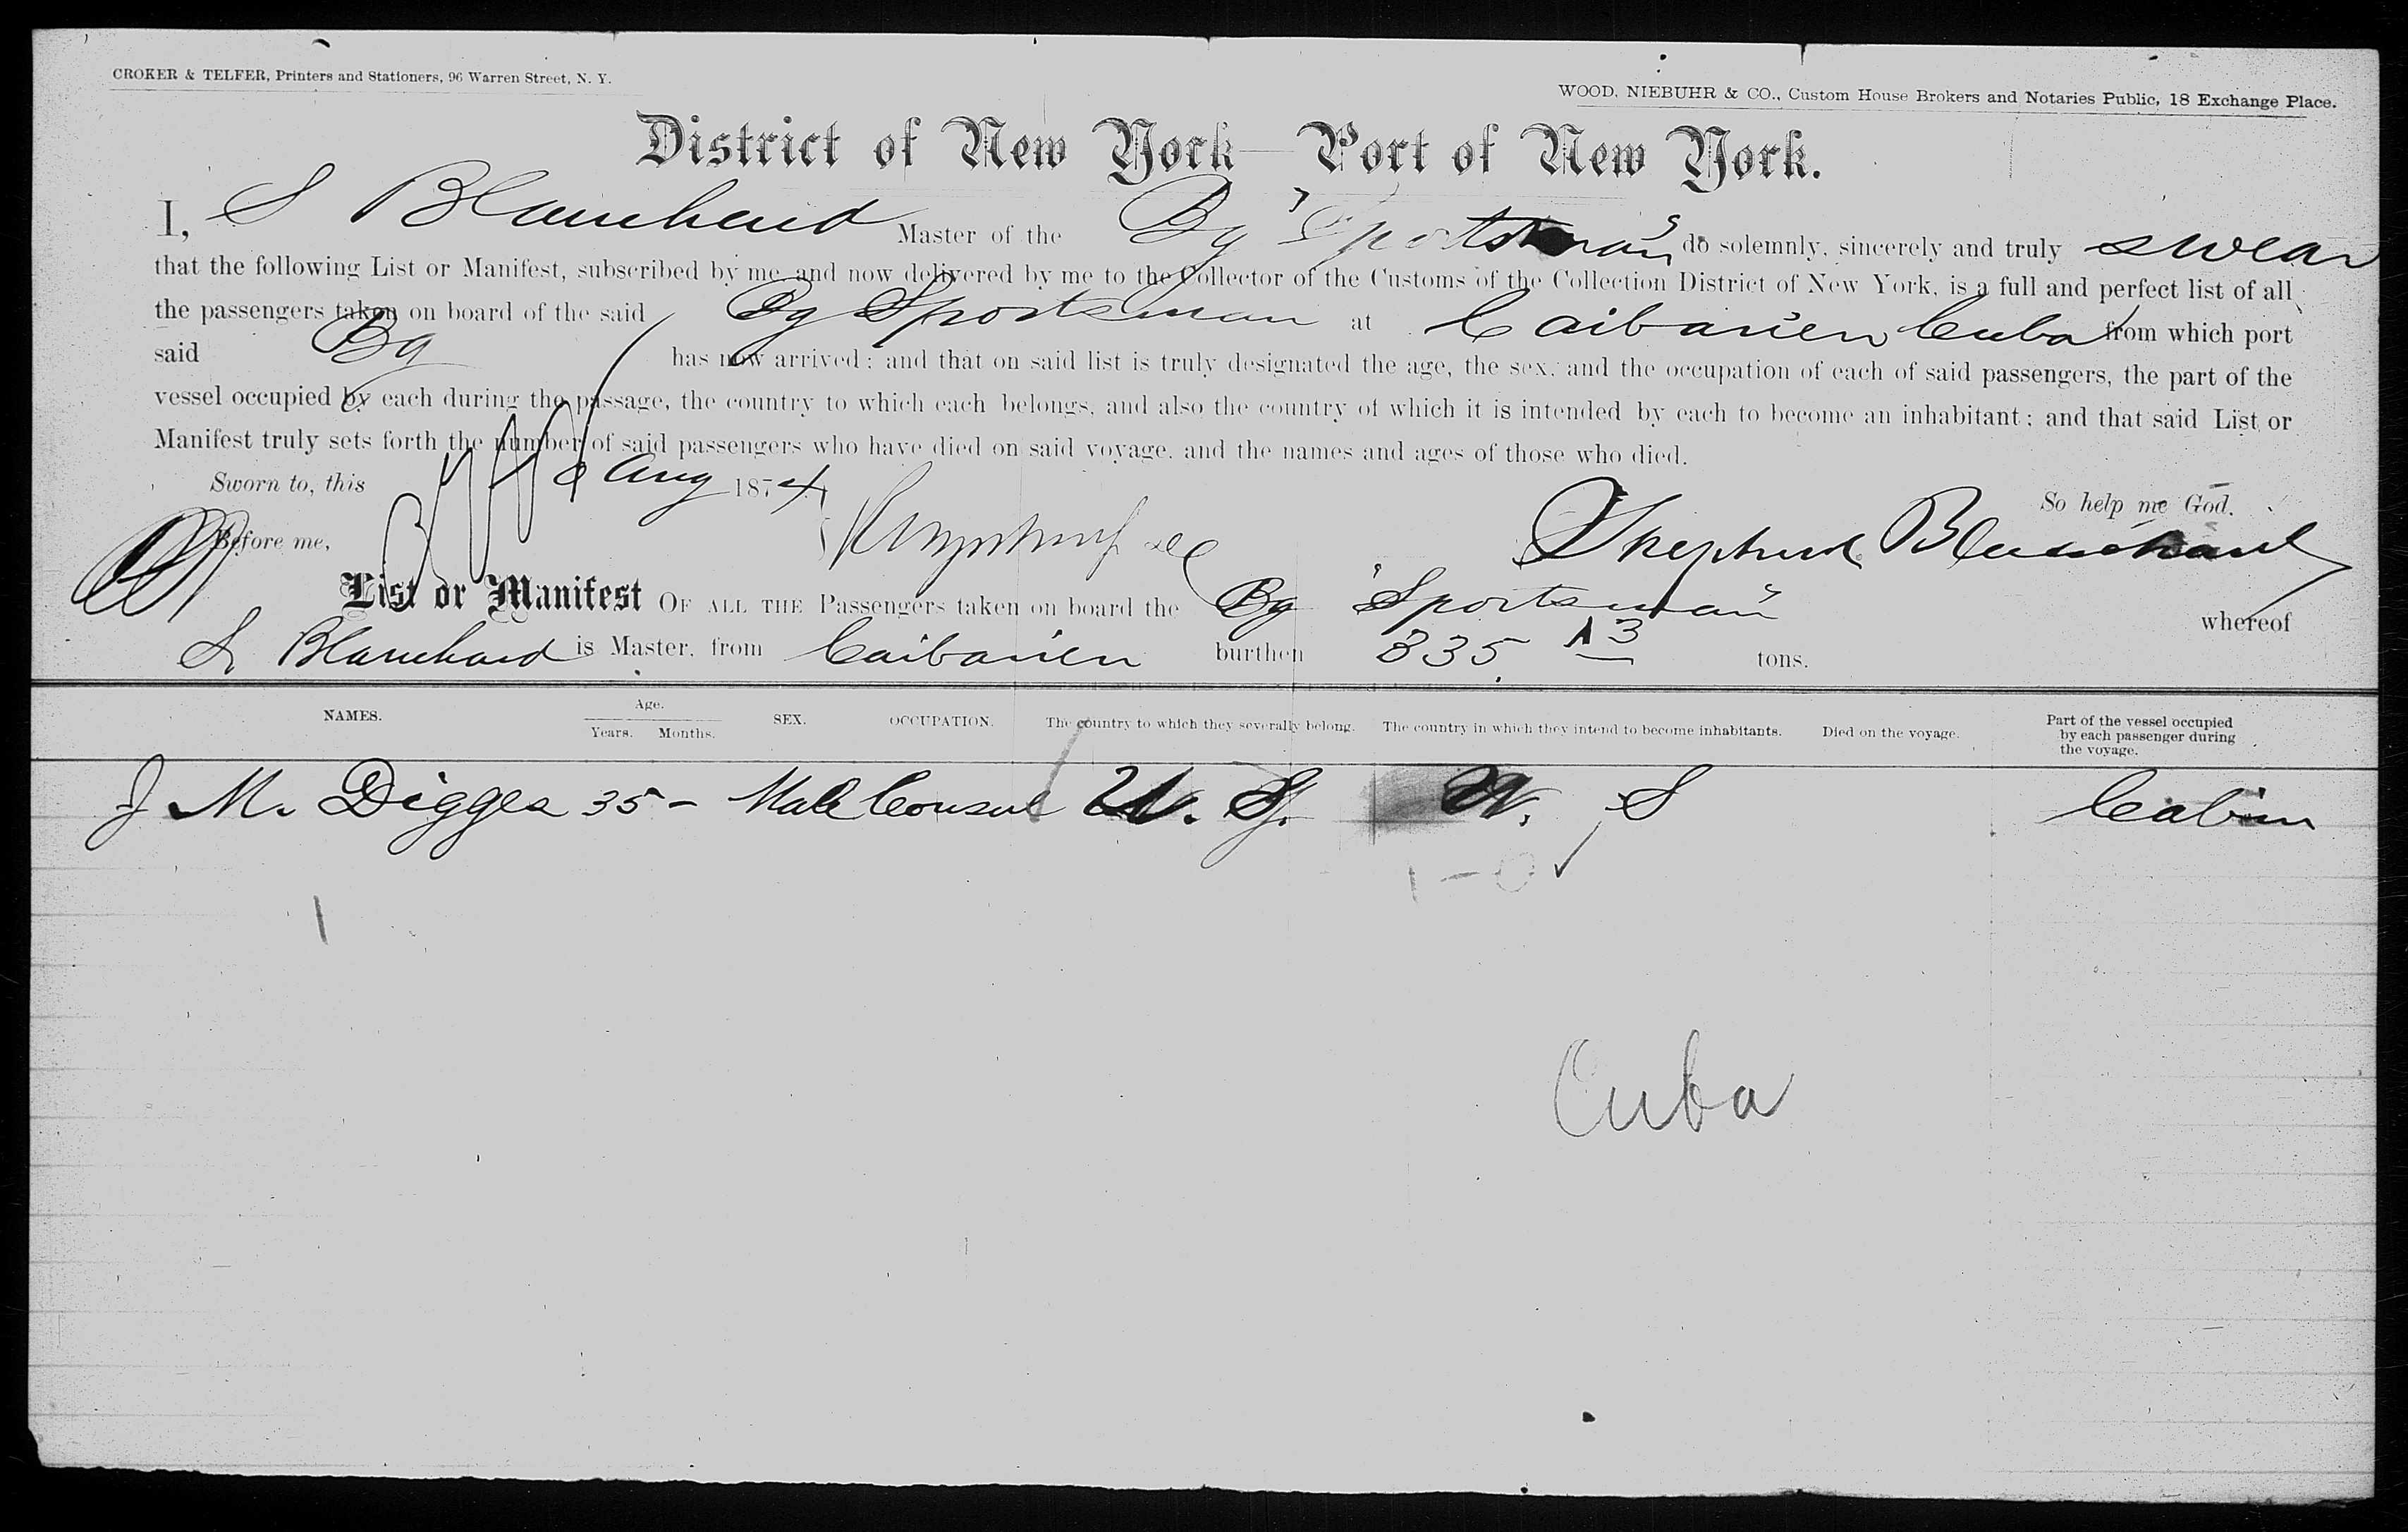 CROKER & TELFER, Printers and Stationers, 96 Warren Street, N. Y.
WOOD, NIEBUHR & CO., Custom House Brokers and Notaries Public, 18 Exchange Place.
District of New York—Port of New York.
I, S Blanchard Master of the Bg "Sportsman" do solemnly, sincerely and truly swear
that the following List or Manifest, subscribed by me and now delivered by me to the Collector of the Customs of the Collection District of New York, is a full and perfect list of all
the passengers taken on board of the said Bg Sportsman at Caibarien Cuba from which port
said Bg has now arrived; and that on said list is truly designated the age, the sex, and the occupation of each of said passengers, the part of the
vessel occupied by each during the passage, the country to which each belongs, and also the country of which it is intended by each to become an inhabitant; and that said List or
Manifest truly sets forth the number of said passengers who have died on said voyage, and the names and ages of those who died.
Sworn to, this Aug 1874
So help me God.
Before me,
Shepherd Blanchard
List or Manifest OF ALL THE Passengers taken on board the Bg "Sportsman" whereof
S Blanchard is Master, from Caibarien burthen 335 tons.
NAMES. Age. Years. Months. SEX. OCCUPATION. The country to which they severally belong. The country in which they intend to become inhabitants. Died on the voyage. Part of the vessel occupied by each passenger during the voyage.
J M. Digges 35 - Male Consul U. S. U. S Cabin
1-0 ✓
1
Cuba